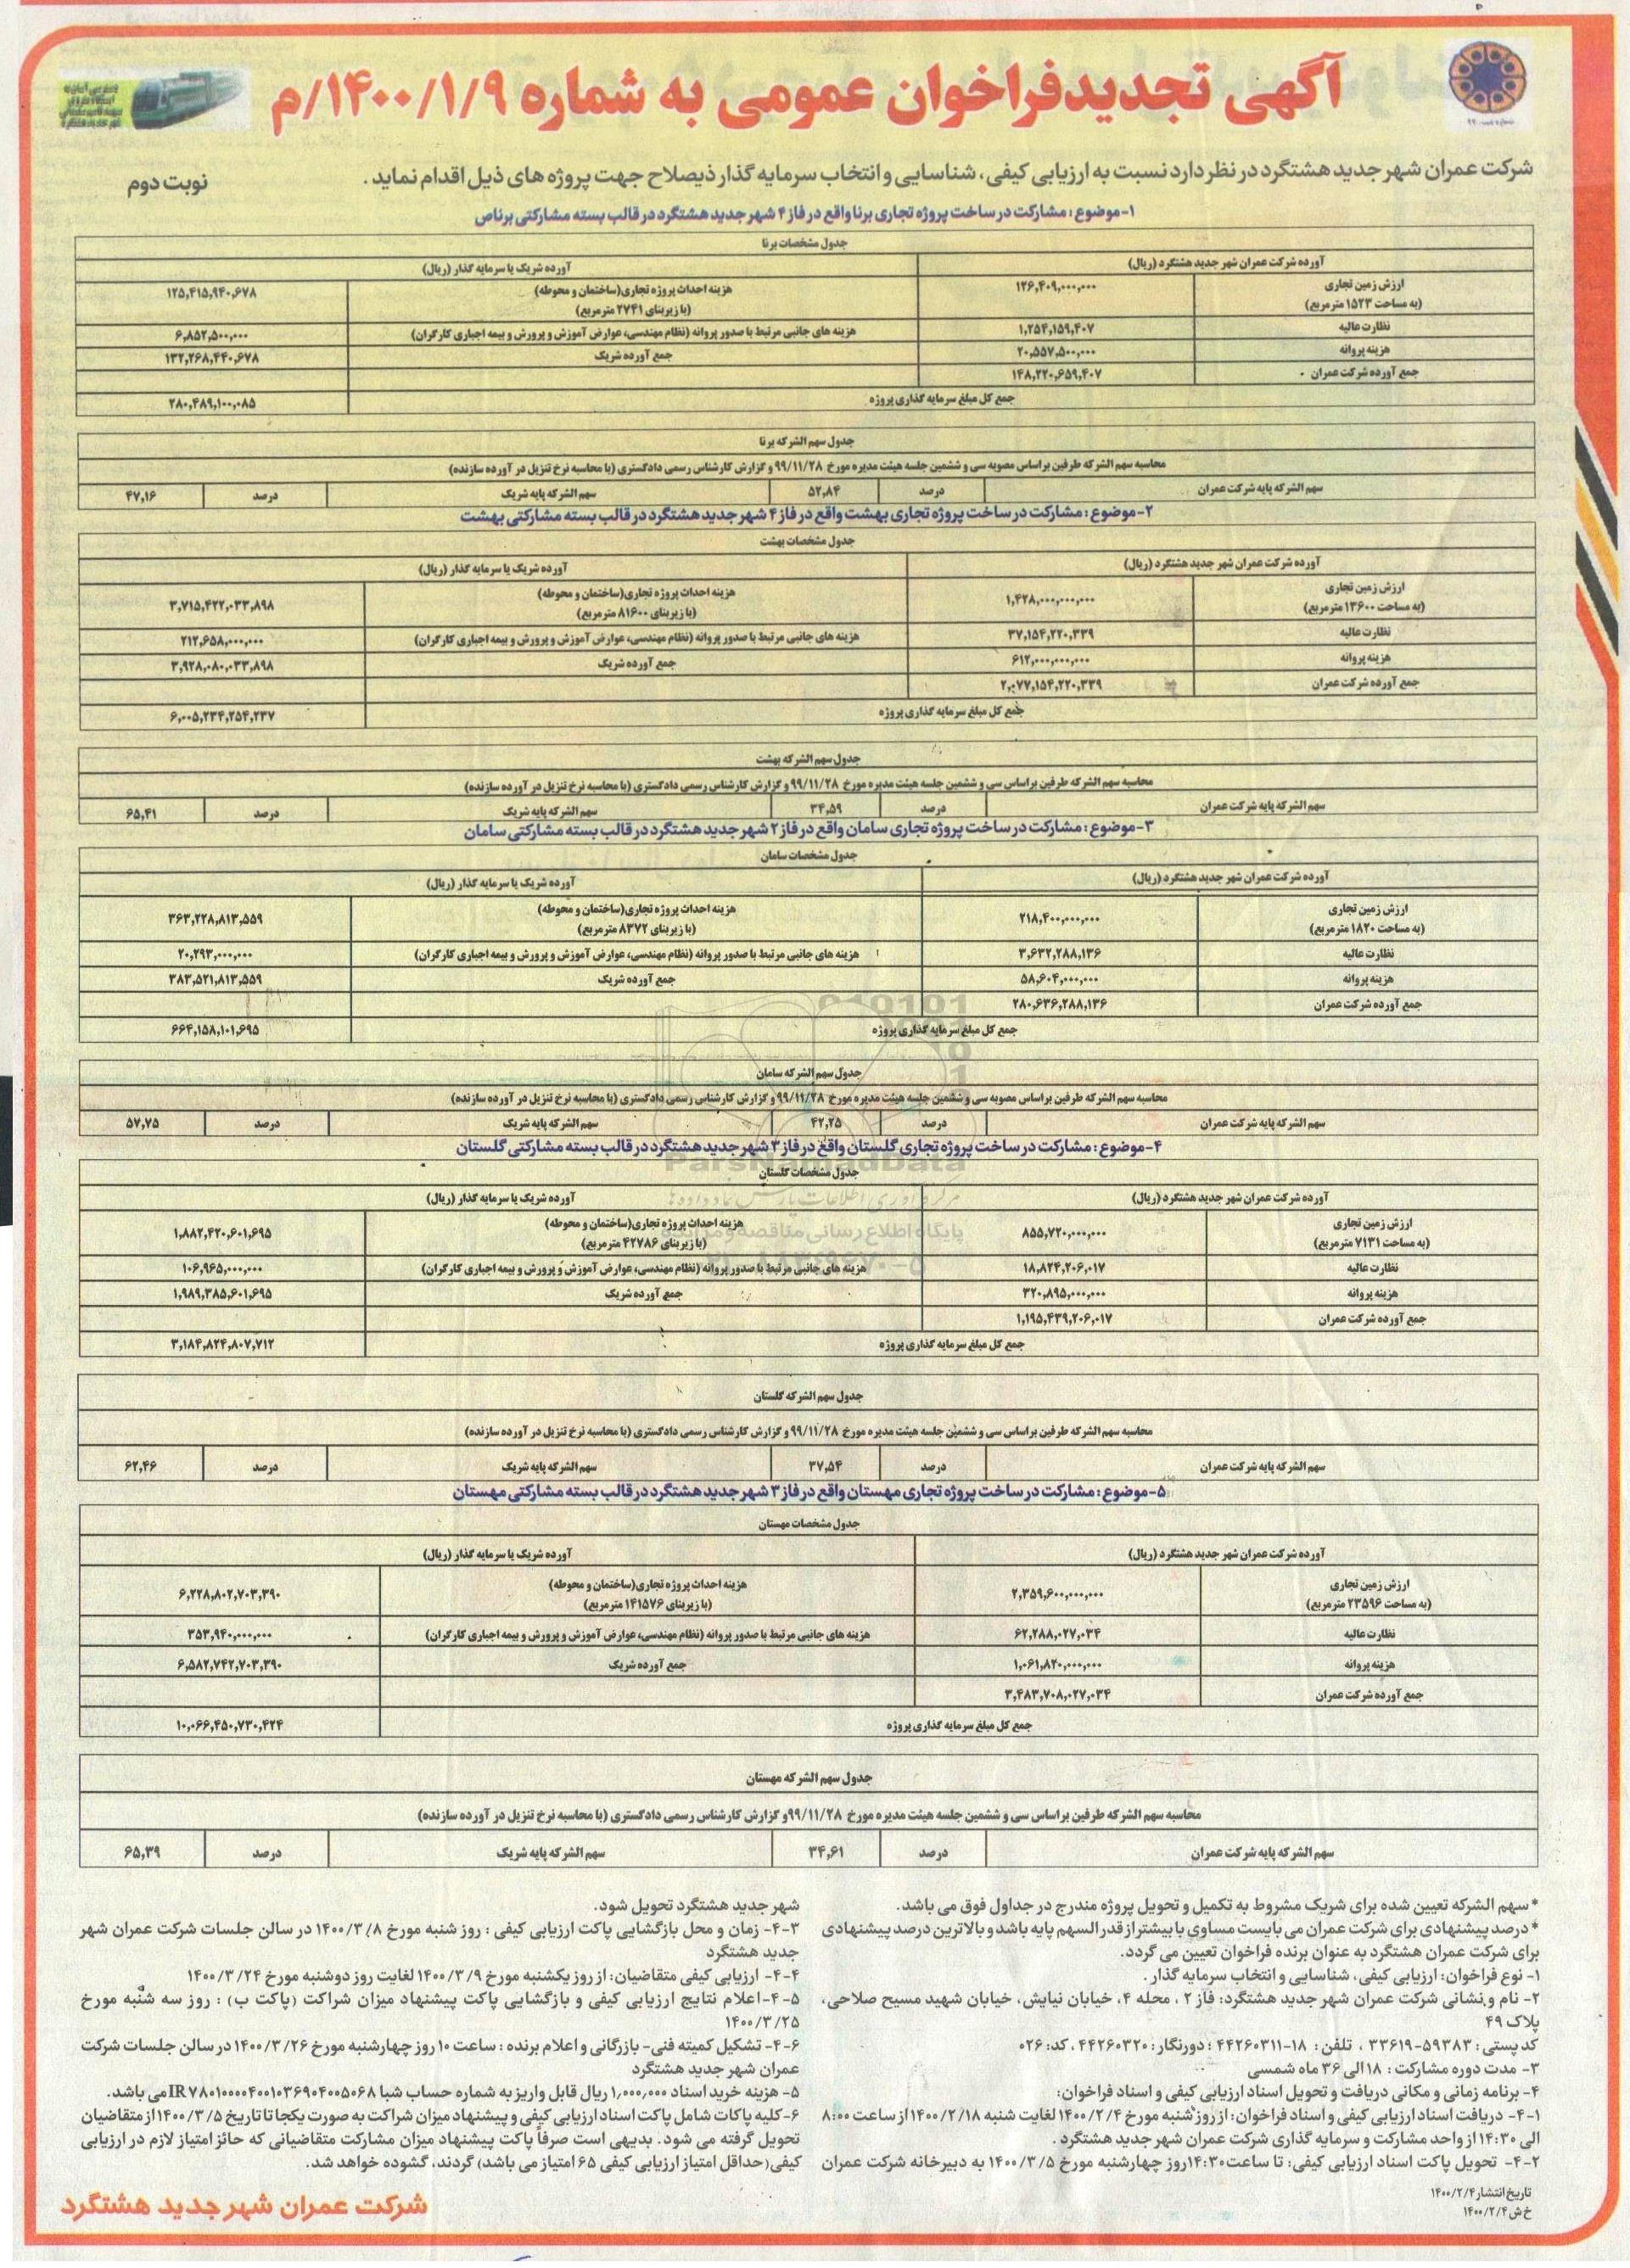 آگهی تجدیدفراخوان عمومی به شماره ۱۴۰۰/۱/۹/م
شرکت عمران شهر جدید هشتگرد در نظر دارد نسبت به ارزیابی کیفی، شناسایی و انتخاب سرمایه گذار ذیصلاح جهت پروژه های ذیل اقدام نماید.
نوبت دوم
۱-موضوع: مشارکت در ساخت پروژه تجاری برنا واقع در فاز ۴ شهر جدید هشتگرد در قالب بسته مشارکتی برناص
جدول مشخصات برنا
آورده شرکت عمران شهر جدید هشتگرد (ریال) آورده شریک یا سرمایه گذار (ریال)
ارزش زمین تجاری (به مساحت ۱۵۲۳ مترمربع) ۱۲۶,۴۰۹,۰۰۰,۰۰۰ هزینه احداث پروژه تجاری(ساختمان و محوطه) (با زیربنای ۲۷۴۱ مترمربع) ۱۲۵,۴۱۵,۹۴۰,۶۷۸
نظارت عالیه ۱,۲۵۴,۱۵۹,۴۰۷ هزینه های جانبی مرتبط با صدور پروانه (نظام مهندسی، عوارض آموزش و پرورش و بیمه اجباری کارگران) ۶,۸۵۲,۵۰۰,۰۰۰
هزینه پروانه ۲۰,۵۵۷,۵۰۰,۰۰۰ جمع آورده شریک ۱۳۲,۲۶۸,۴۴۰,۶۷۸
جمع آورده شرکت عمران ۱۴۸,۲۲۰,۶۵۹,۴۰۷
جمع کل مبلغ سرمایه گذاری پروژه ۲۸۰,۴۸۹,۱۰۰,۰۸۵
جدول سهم الشرکه برنا
محاسبه سهم الشرکه طرفین براساس مصوبه سی و ششمین جلسه هیئت مدیره مورخ ۹۹/۱۱/۲۸ و گزارش کارشناس رسمی دادگستری (با محاسبه نرخ تنزیل در آورده سازنده)
سهم الشرکه پایه شرکت عمران درصد ۵۲,۸۴ سهم الشرکه پایه شریک درصد ۴۷,۱۶
۲-موضوع: مشارکت در ساخت پروژه تجاری بهشت واقع در فاز ۴ شهر جدید هشتگرد در قالب بسته مشارکتی بهشت
جدول مشخصات بهشت
آورده شرکت عمران شهر جدید هشتگرد (ریال) آورده شریک یا سرمایه گذار (ریال)
ارزش زمین تجاری (به مساحت ۱۳۶۰۰ مترمربع) ۱,۴۲۸,۰۰۰,۰۰۰,۰۰۰ هزینه احداث پروژه تجاری(ساختمان و محوطه) (با زیربنای ۸۱۶۰۰ مترمربع) ۳,۷۱۵,۴۲۲,۰۳۳,۸۹۸
نظارت عالیه ۳۷,۱۵۴,۲۲۰,۳۳۹ هزینه های جانبی مرتبط با صدور پروانه (نظام مهندسی، عوارض آموزش و پرورش و بیمه اجباری کارگران) ۲۱۲,۶۵۸,۰۰۰,۰۰۰
هزینه پروانه ۶۱۲,۰۰۰,۰۰۰,۰۰۰ جمع آورده شریک ۳,۹۲۸,۰۸۰,۰۳۳,۸۹۸
جمع آورده شرکت عمران ۲,۰۷۷,۱۵۴,۲۲۰,۳۳۹
جمع کل مبلغ سرمایه گذاری پروژه ۶,۰۰۵,۲۳۴,۲۵۴,۲۳۷
جدول سهم الشرکه بهشت
محاسبه سهم الشرکه طرفین براساس سی و ششمین جلسه هیئت مدیره مورخ ۹۹/۱۱/۲۸ و گزارش کارشناس رسمی دادگستری (با محاسبه نرخ تنزیل در آورده سازنده)
سهم الشرکه پایه شرکت عمران درصد ۳۴,۵۹ سهم الشرکه پایه شریک درصد ۶۵,۴۱
۳-موضوع: مشارکت در ساخت پروژه تجاری سامان واقع در فاز ۲ شهر جدید هشتگرد در قالب بسته مشارکتی سامان
جدول مشخصات سامان
آورده شرکت عمران شهر جدید هشتگرد (ریال) آورده شریک یا سرمایه گذار (ریال)
ارزش زمین تجاری (به مساحت ۱۸۲۰ مترمربع) ۲۱۸,۴۰۰,۰۰۰,۰۰۰ هزینه احداث پروژه تجاری(ساختمان و محوطه) (با زیربنای ۸۳۷۲ مترمربع) ۳۶۳,۲۲۸,۸۱۳,۵۵۹
نظارت عالیه ۳,۶۳۲,۲۸۸,۱۳۶ هزینه های جانبی مرتبط با صدور پروانه (نظام مهندسی، عوارض آموزش و پرورش و بیمه اجباری کارگران) ۲۰,۲۹۳,۰۰۰,۰۰۰
هزینه پروانه ۵۸,۶۰۴,۰۰۰,۰۰۰ جمع آورده شریک ۳۸۳,۵۲۱,۸۱۳,۵۵۹
جمع آورده شرکت عمران ۲۸۰,۶۳۶,۲۸۸,۱۳۶
جمع کل مبلغ سرمایه گذاری پروژه ۶۶۴,۱۵۸,۱۰۱,۶۹۵
جدول سهم الشرکه سامان
محاسبه سهم الشرکه طرفین براساس مصوبه سی و ششمین جلسه هیئت مدیره مورخ ۹۹/۱۱/۲۸ و گزارش کارشناس رسمی دادگستری (با محاسبه نرخ تنزیل در آورده سازنده)
سهم الشرکه پایه شرکت عمران درصد ۴۲,۲۵ سهم الشرکه پایه شریک درصد ۵۷,۷۵
۴-موضوع: مشارکت در ساخت پروژه تجاری گلستان واقع در فاز ۳ شهر جدید هشتگرد در قالب بسته مشارکتی گلستان
جدول مشخصات گلستان
آورده شرکت عمران شهر جدید هشتگرد (ریال) آورده شریک یا سرمایه گذار (ریال)
ارزش زمین تجاری (به مساحت ۷۱۳۱ مترمربع) ۸۵۵,۷۲۰,۰۰۰,۰۰۰ هزینه احداث پروژه تجاری(ساختمان و محوطه) (با زیربنای ۴۲۷۸۶ مترمربع) ۱,۸۸۲,۴۲۰,۶۰۱,۶۹۵
نظارت عالیه ۱۸,۸۲۴,۲۰۶,۰۱۷ هزینه های جانبی مرتبط با صدور پروانه (نظام مهندسی، عوارض آموزش و پرورش و بیمه اجباری کارگران) ۱۰۶,۹۶۵,۰۰۰,۰۰۰
هزینه پروانه ۳۲۰,۸۹۵,۰۰۰,۰۰۰ جمع آورده شریک ۱,۹۸۹,۳۸۵,۶۰۱,۶۹۵
جمع آورده شرکت عمران ۱,۱۹۵,۴۳۹,۲۰۶,۰۱۷
جمع کل مبلغ سرمایه گذاری پروژه ۳,۱۸۴,۸۲۴,۸۰۷,۷۱۲
جدول سهم الشرکه گلستان
محاسبه سهم الشرکه طرفین براساس سی و ششمین جلسه هیئت مدیره مورخ ۹۹/۱۱/۲۸ و گزارش کارشناس رسمی دادگستری (با محاسبه نرخ تنزیل در آورده سازنده)
سهم الشرکه پایه شرکت عمران درصد ۳۷,۵۴ سهم الشرکه پایه شریک درصد ۶۲,۴۶
۵-موضوع: مشارکت در ساخت پروژه تجاری مهستان واقع در فاز ۳ شهر جدید هشتگرد در قالب بسته مشارکتی مهستان
جدول مشخصات مهستان
آورده شرکت عمران شهر جدید هشتگرد (ریال) آورده شریک یا سرمایه گذار (ریال)
ارزش زمین تجاری (به مساحت ۲۳۵۹۶ مترمربع) ۲,۳۵۹,۶۰۰,۰۰۰,۰۰۰ هزینه احداث پروژه تجاری(ساختمان و محوطه) (با زیربنای ۱۴۱۵۷۶ مترمربع) ۶,۲۲۸,۸۰۲,۷۰۳,۳۹۰
نظارت عالیه ۶۲,۲۸۸,۰۲۷,۰۳۴ هزینه های جانبی مرتبط با صدور پروانه (نظام مهندسی، عوارض آموزش و پرورش و بیمه اجباری کارگران) ۳۵۳,۹۴۰,۰۰۰,۰۰۰
هزینه پروانه ۱,۰۶۱,۸۲۰,۰۰۰,۰۰۰ جمع آورده شریک ۶,۵۸۲,۷۴۲,۷۰۳,۳۹۰
جمع آورده شرکت عمران ۳,۴۸۳,۷۰۸,۰۲۷,۰۳۴
جمع کل مبلغ سرمایه گذاری پروژه ۱۰,۰۶۶,۴۵۰,۷۳۰,۴۲۴
جدول سهم الشرکه مهستان
محاسبه سهم الشرکه طرفین براساس سی و ششمین جلسه هیئت مدیره مورخ ۹۹/۱۱/۲۸ و گزارش کارشناس رسمی دادگستری (با محاسبه نرخ تنزیل در آورده سازنده)
سهم الشرکه پایه شرکت عمران درصد ۳۴,۶۱ سهم الشرکه پایه شریک درصد ۶۵,۳۹
* سهم الشرکه تعیین شده برای شریک مشروط به تکمیل و تحویل پروژه مندرج در جداول فوق می باشد.
* درصد پیشنهادی برای شرکت عمران می بایست مساوی یا بیشتر از قدرالسهم پایه باشد و بالاترین درصد پیشنهادی
برای شرکت عمران هشتگرد به عنوان برنده فراخوان تعیین می گردد.
۱- نوع فراخوان: ارزیابی کیفی، شناسایی و انتخاب سرمایه گذار.
۲- نام و نشانی شرکت عمران شهر جدید هشتگرد: فاز ۲، محله ۴، خیابان نیایش، خیابان شهید مسیح صلاحی،
پلاک ۴۹
کد پستی: ۵۹۳۸۳-۳۳۶۱۹، تلفن: ۱۸-۴۴۲۶۰۳۱۱؛ دورنگار: ۴۴۲۶۰۳۲۰، کد: ۰۲۶
۳- مدت دوره مشارکت: ۱۸ الی ۳۶ ماه شمسی
۴- برنامه زمانی و مکانی دریافت و تحویل اسناد ارزیابی کیفی و اسناد فراخوان:
۴-۱- دریافت اسناد ارزیابی کیفی و اسناد فراخوان: از روز شنبه مورخ ۱۴۰۰/۲/۴ لغایت شنبه ۱۴۰۰/۲/۱۸ از ساعت ۸:۰۰
الی ۱۴:۳۰ از واحد مشارکت و سرمایه گذاری شرکت عمران شهر جدید هشتگرد.
۴-۲- تحویل پاکت اسناد ارزیابی کیفی: تا ساعت ۱۴:۳۰ روز چهارشنبه مورخ ۱۴۰۰/۳/۵ به دبیرخانه شرکت عمران
شهر جدید هشتگرد تحویل شود.
۴-۳- زمان و محل بازگشایی پاکت ارزیابی کیفی: روز شنبه مورخ ۱۴۰۰/۳/۸ در سالن جلسات شرکت عمران شهر
جدید هشتگرد
۴-۴- ارزیابی کیفی متقاضیان: از روز یکشنبه مورخ ۱۴۰۰/۳/۹ لغایت روز دوشنبه مورخ ۱۴۰۰/۳/۲۴
۴-۵- اعلام نتایج ارزیابی کیفی و بازگشایی پاکت پیشنهاد میزان شراکت (پاکت ب): روز سه شنبه مورخ
۱۴۰۰/۳/۲۵
۴-۶- تشکیل کمیته فنی- بازرگانی و اعلام برنده: ساعت ۱۰ روز چهارشنبه مورخ ۱۴۰۰/۳/۲۶ در سالن جلسات شرکت
عمران شهر جدید هشتگرد
۵- هزینه خرید اسناد ۱,۰۰۰,۰۰۰ ریال قابل واریز به شماره حساب شبا IR۷۸۰۱۰۰۰۰۴۰۰۱۰۳۶۹۰۴۰۰۵۰۶۸ می باشد.
۶- کلیه پاکات شامل پاکت اسناد ارزیابی کیفی و پیشنهاد میزان شراکت به صورت یکجا تا تاریخ ۱۴۰۰/۳/۵ از متقاضیان
تحویل گرفته می شود. بدیهی است صرفاً پاکت پیشنهاد میزان مشارکت متقاضیانی که حائز امتیاز لازم در ارزیابی
کیفی(حداقل امتیاز ارزیابی کیفی ۶۵ امتیاز می باشد) گردند، گشوده خواهد شد.
تاریخ انتشار ۱۴۰۰/۲/۴
خ ش ۱۴۰۰/۲/۴
شرکت عمران شهر جدید هشتگرد